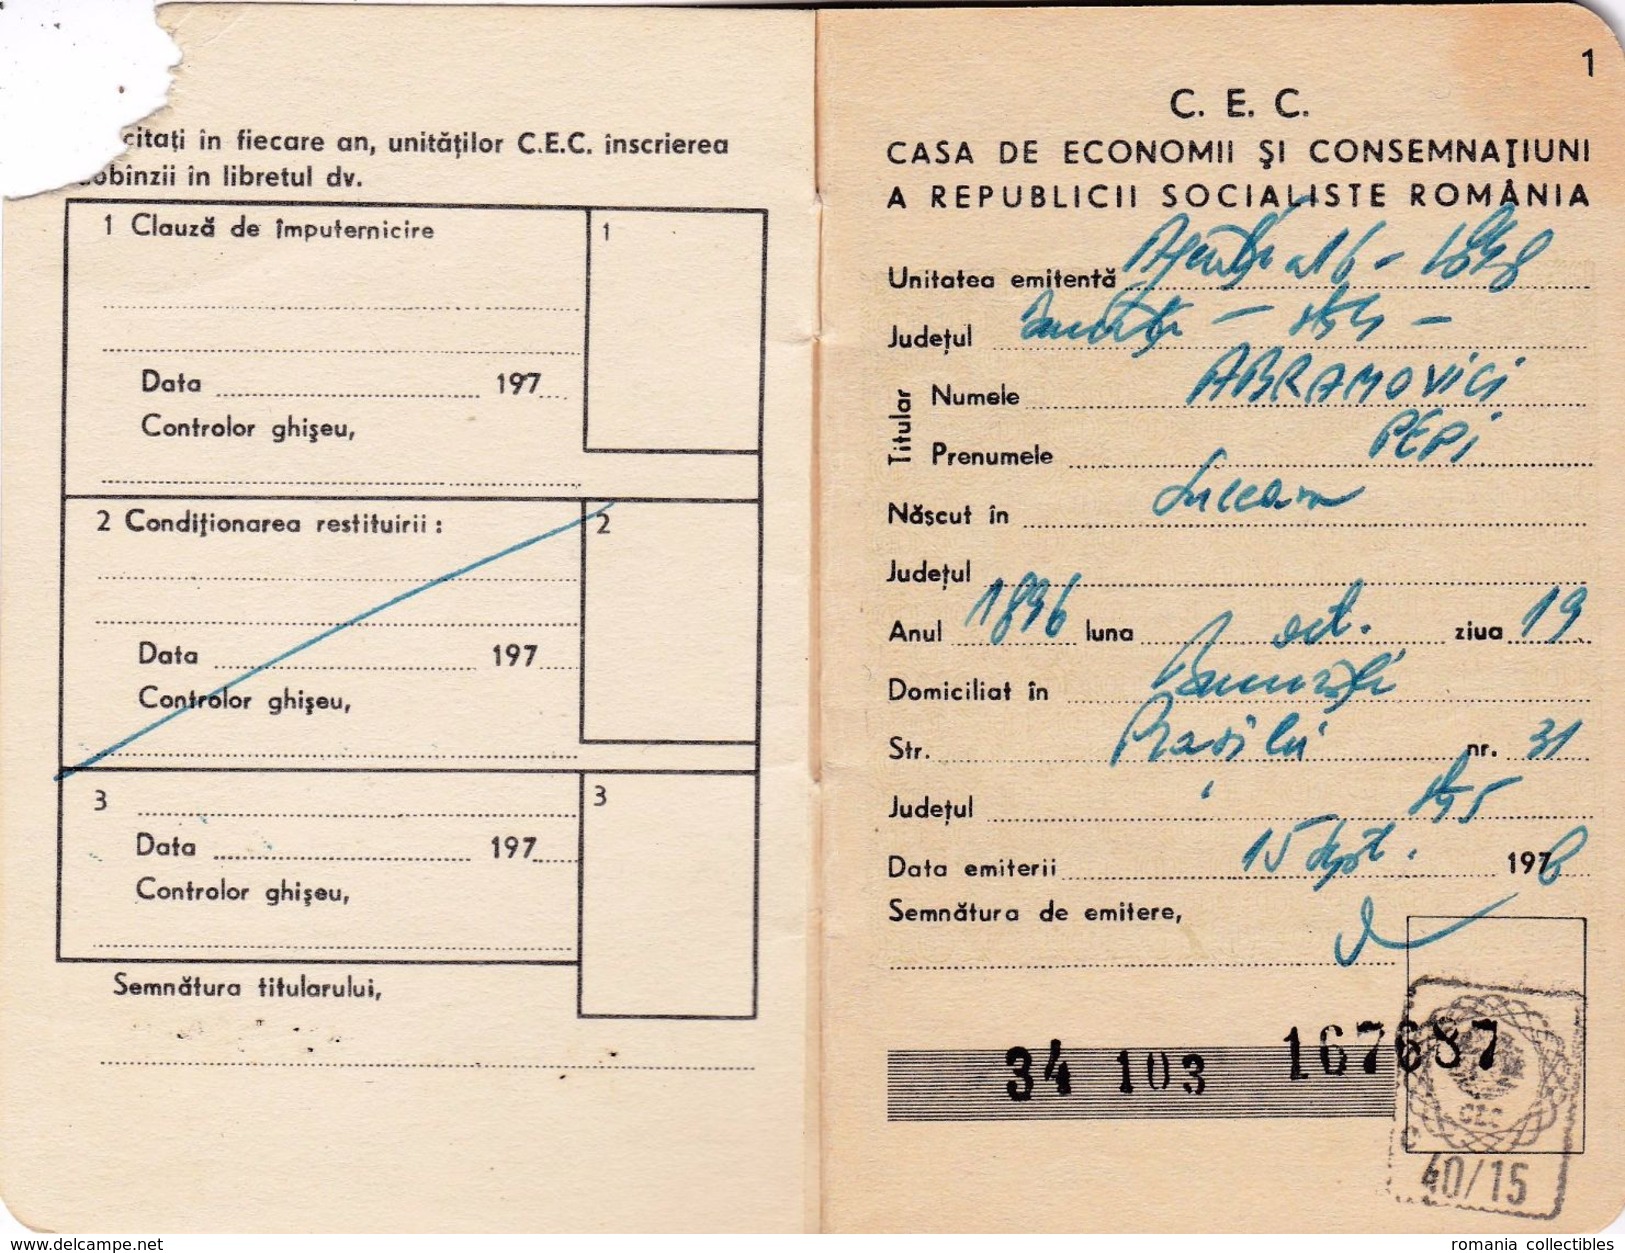 citați in fiecare an, unităților C.E.C. înscrierea
obinzii în libretul dv.
1 Clauză de împuternicire
1
Data 197
Controlor ghișeu,
2 Condiționarea restituirii :
2
Data 197
Controlor ghișeu,
3
3
Data 197
Controlor ghișeu,
Semnătura titularului,
1
C. E. C.
CASA DE ECONOMII ȘI CONSEMNAȚIUNI
A REPUBLICII SOCIALISTE ROMÂNIA
Unitatea emitentă
Județul
Titular
Numele ABRAMOVICI
Prenumele PEPI
Născut în Suceava
Județul
Anul 1896 luna oct. ziua 19
Domiciliat în
Str. nr. 31
Județul
Data emiterii 15 sept. 1976
Semnătura de emitere,
34 103 167687
CEC
C
40/15
www.delcampe.net
romania collectibles